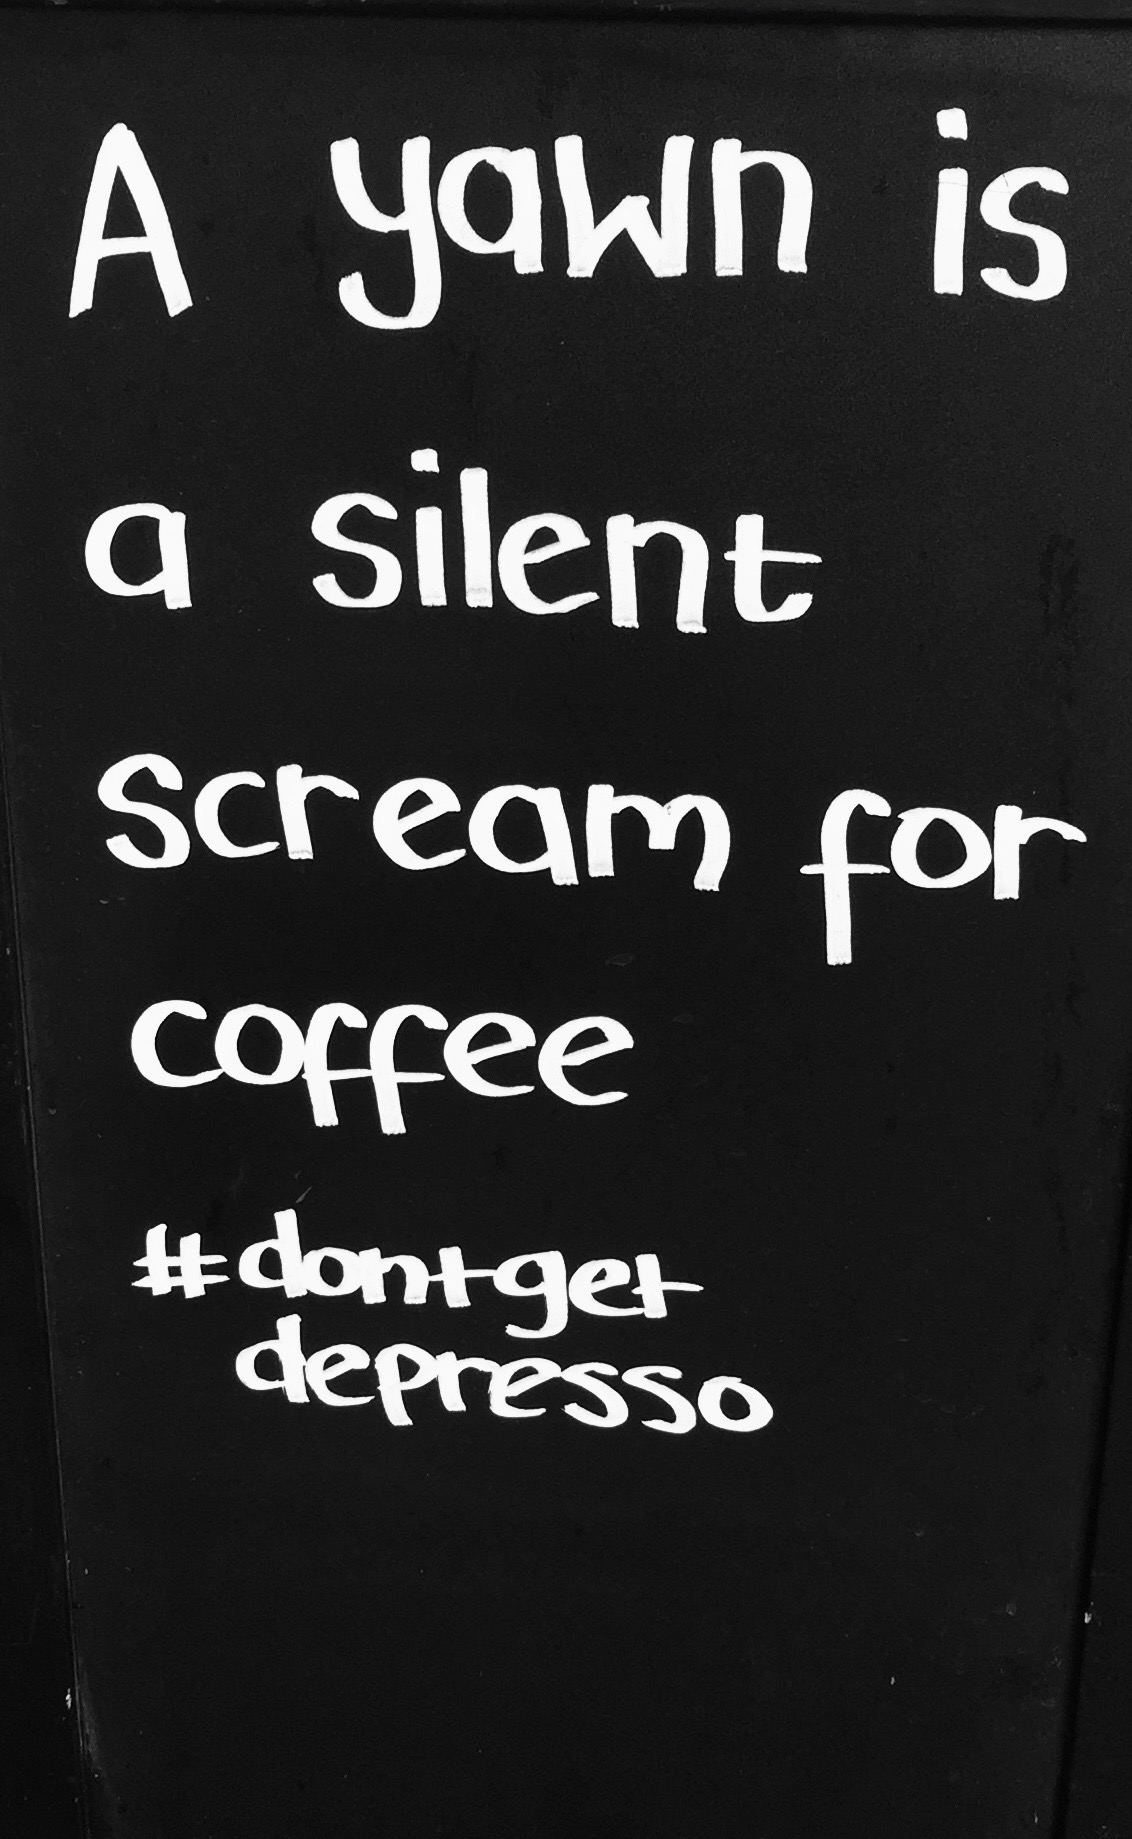 A yawn is
a silent
scream for
coffee
#dontget
depresso